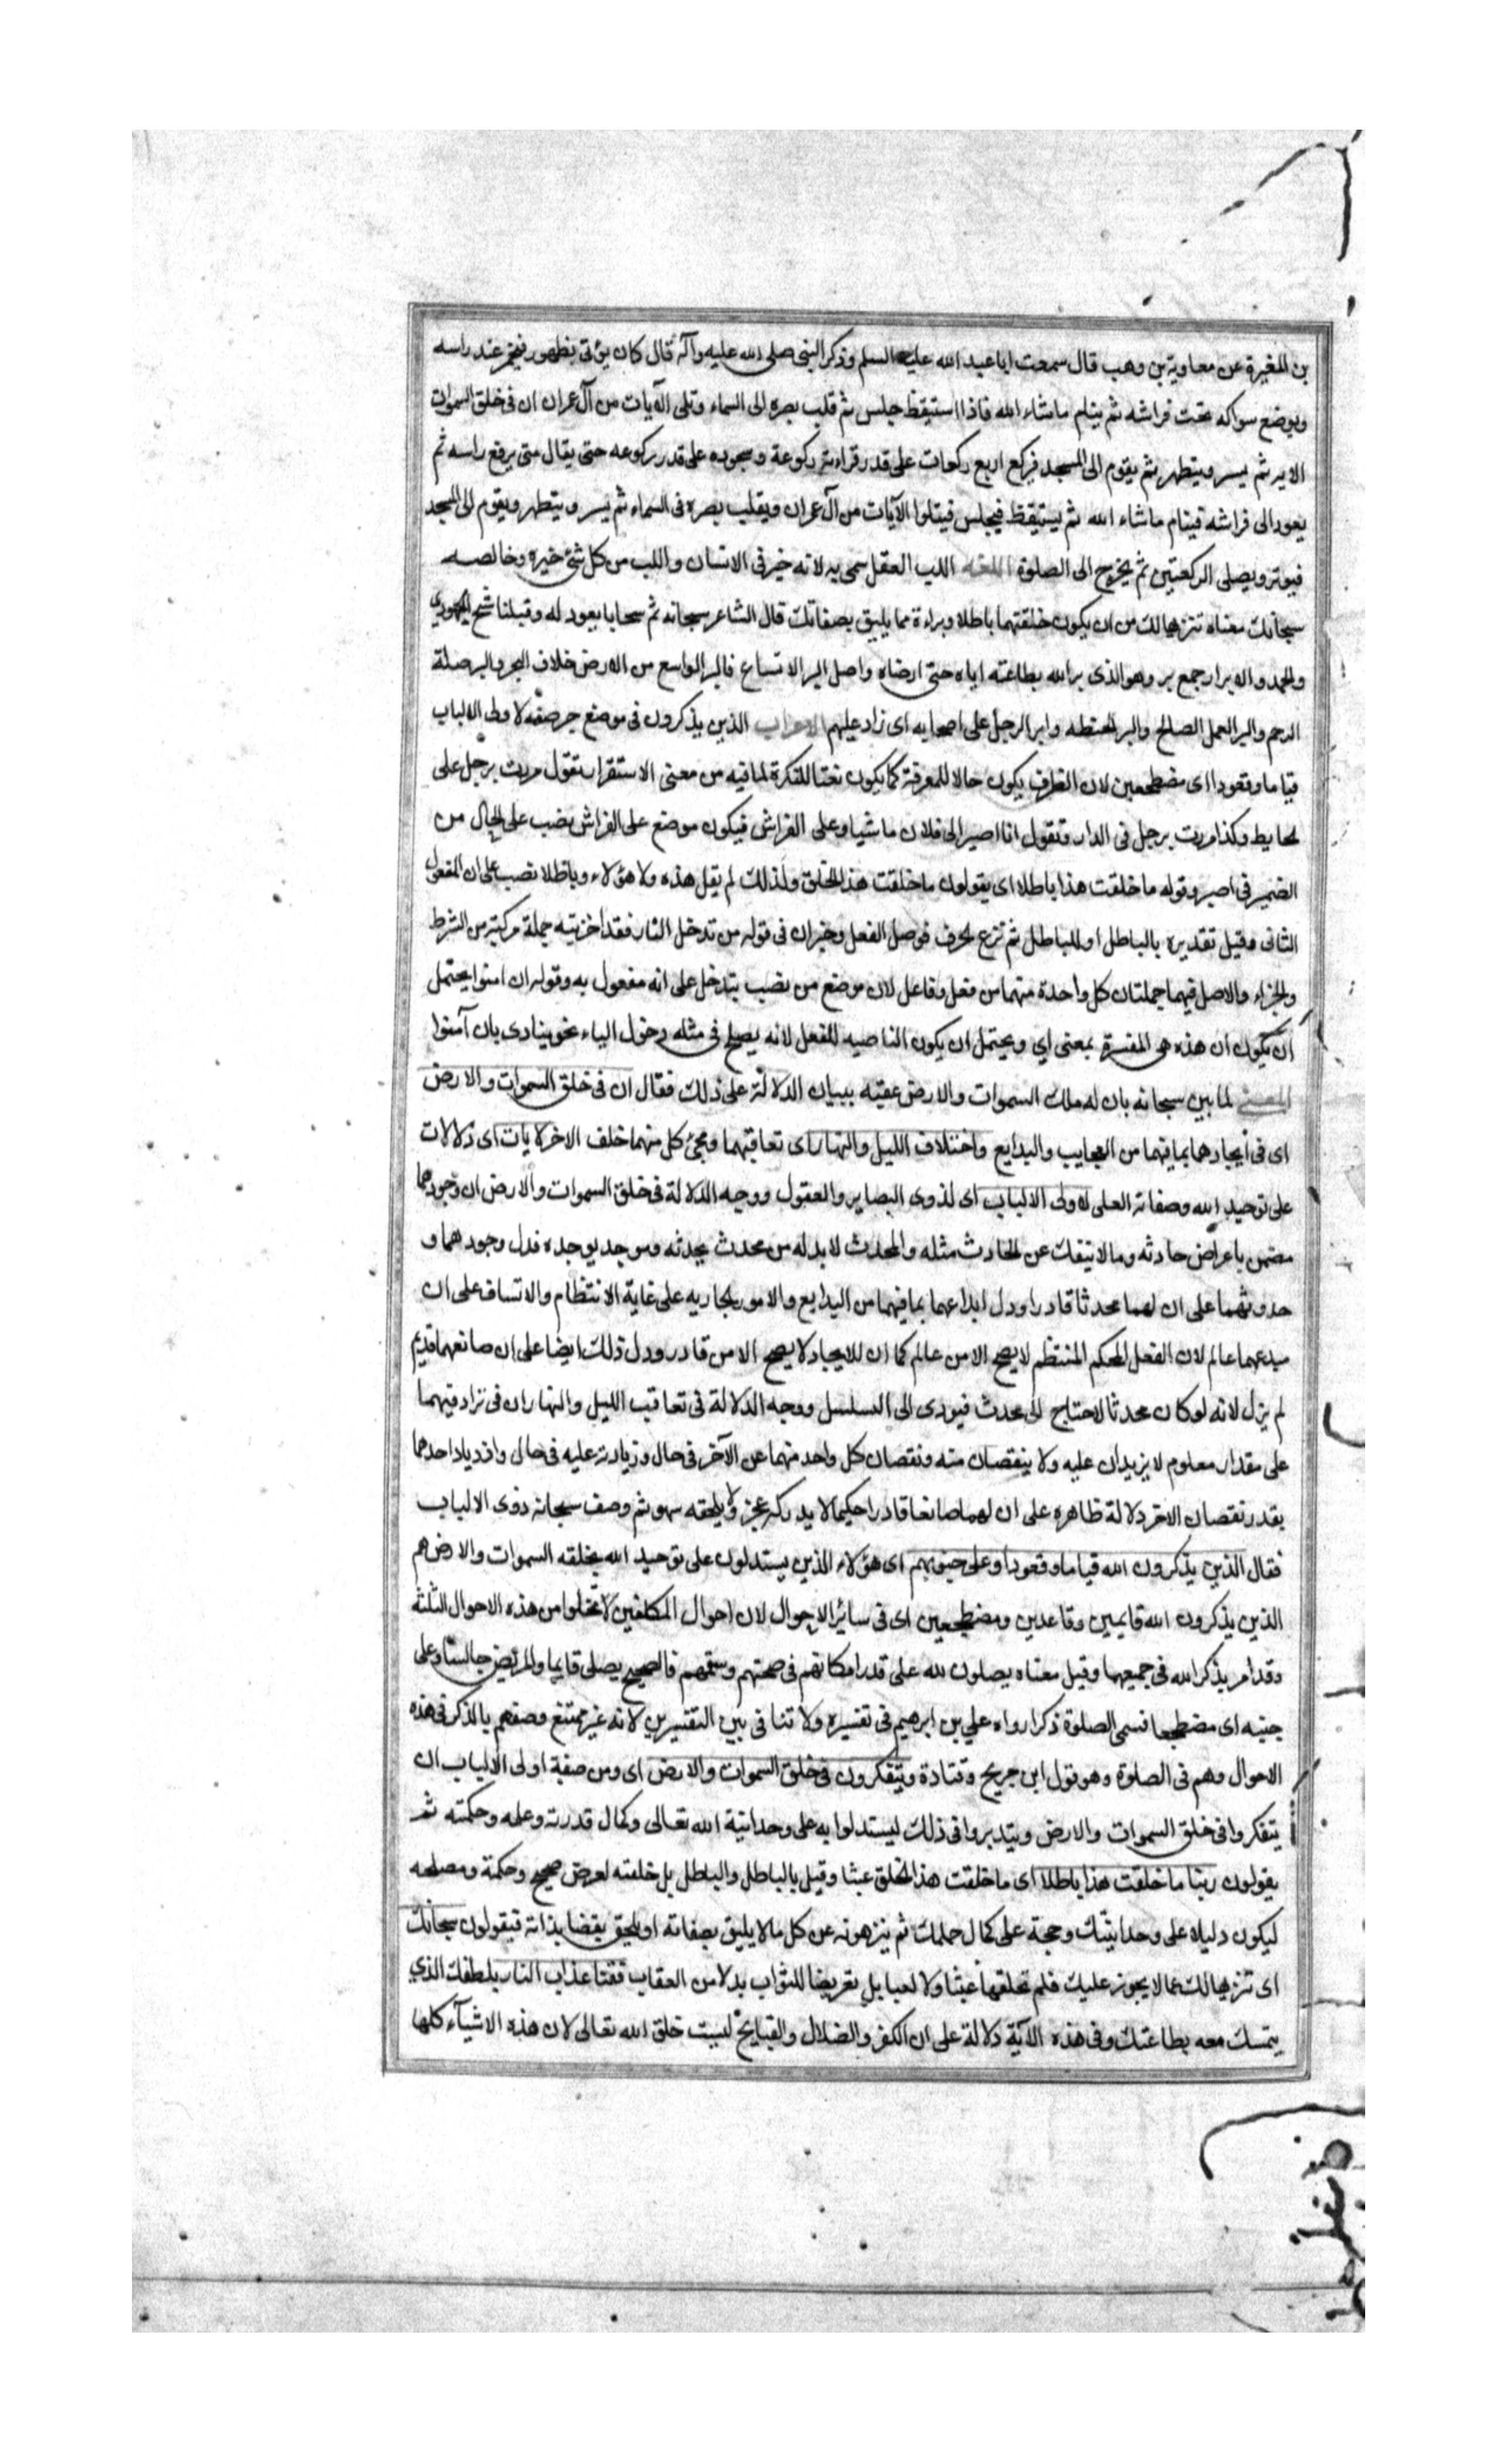 بن المغيرة عن معاوية بن وهب قال سمعت ابا عبد الله عليه السلم وذكر النبى صلى الله عليه وآله قال كان يؤتى بطهور فيخمر عند راسه
ويوضع سواكه تحت فراشه ثم ينام ماشاء الله فاذا استيقظ جلس ثم قلب بصره الى السماء وتلى الآيات من آل عمران ان فى خلق السموات
الايه ثم يسر ويتطهر ثم يقوم الى المسجد فيركع اربع ركعات على قدر قراءته ركوعة وسجوده على قدر ركوعه حتى يقال متى يرفع راسه ثم
يعود الى فراشه فينام ماشاء الله ثم يستيقظ فيجلس فيتلوا الآيات من آل عمران ويقلب بصره فى السماء ثم يسر ويتطهر ويقوم الى المسجد
فيوتر ويصلى الركعتين ثم يخرج الى الصلوة اللغه اللب العقل سمى به لانه خير فى الانسان واللب من كل شئ خيره وخالصه
سبحانك معناه تنزيها لك من ان يكون خلقتهما باطلا وبراءة مما يليق بصفاتك قال الشاعر سبحانه ثم سبحانا يعود له وقبلنا سبح الجودى
والجمد والابرار جمع بر وهو الذى بر الله بطاعته اياه حتى ارضاه واصل البر الاتساع فالبر الواسع من الارض خلاف البحر والبر صلة
الرحم والبر العمل الصالح والبر الحنطه وابر الرجل على اصحابه اى زاد عليهم الاعراب الذين يذكرون فى موضع جر صفة لاولى الالباب
قياما وقعودا اى مضطجعين لان الظرف يكون حالا للمعرفة كما يكون نعتا للنكرة لما فيه من معنى الاستقرار تقول مررت برجل على
الحايط وكذا مررت برجل فى الدار وتقول انا اصير الى فلان ماشيا وعلى الفراش فيكون موضع على الفراش نصب على الحال من
الضمير فى اصير وقوله ما خلقت هذا باطلا اى يقولون ما خلقت هذا الخلق ولذلك لم يقل هذه ولا هؤلاء وباطلا نصب على ان المفعول
الثانى وقيل تقديره بالباطل او للباطل ثم نزع الحرف فوصل الفعل وخبر ان فى قوله من تدخل النار فقد اخزيته جملة مركبة من الشرط
والجزاء والاصل فيهما جملتان كل واحدة منهما من فعل وفاعل لان موضع من نصب بتدخل على انه مفعول به وقوله ان امنوا يحتمل
ان يكون ان هذه هى المفسرة بمعنى اي ويحتمل ان يكون الناصبه للفعل لانه يصلح فى مثله دخول الباء نحو ينادى بان آمنوا
المعنى لما بين سبحانه بان له ملك السموات والارض عقبه ببيان الدلالة على ذلك فقال ان فى خلق السموات والارض
اى فى ايجادهما بما فيهما من العجايب والبدايع واختلاف الليل والنهار اى تعاقبهما ومجئ كل منهما خلف الاخر لآيات اى دلالات
على توحيد الله وصفاته العلى لاولى الالباب اى لذوى البصاير والعقول ووجه الدلالة فى خلق السموات والارض ان وجودهما
مضمن باعراض حادثه وما لا ينفك عن الحادث مثله والمحدث لابد له من محدث يحدثه وموجد يوجده فدل وجودهما و
حدوثهما على ان لهما محدثا قادرا ودل ابداعهما بما فيهما من البدايع والامور الجاريه على غاية الانتظام والاتساق على ان
مبدعهما عالم لان الفعل المحكم المنتظم لا يصح الا من عالم كما ان الايجاد لا يصح الا من قادر ودل ذلك ايضا على ان صانعهما قديم
لم يزل لانه لو كان محدثا لاحتاج الى محدث فيودى الى السلسل ووجه الدلالة فى تعاقب الليل والنهار ان فى ترادفهما
على مقدار معلوم لا يزيدان عليه ولا ينقصان منه ونقصان كل واحد منهما عن الآخر فى حال وزيادته عليه فى حال وازدياد احدهما
بقدر نقصان الاخر دلالة ظاهره على ان لهما صانعا قادرا حكيما لا يدركه عجز ولا يلحقه سهو ثم وصف سبحانه ذوى الالباب
فقال الذين يذكرون الله قياما وقعودا وعلى جنوبهم اى هؤلاء الذين يستدلون على توحيد الله بخلقه السموات والارض هم
الذين يذكرون الله قايمين وقاعدين ومضطجعين اى فى سائر الاحوال لان احوال المكلفين لا تخلوا من هذه الاحوال الثلثة
وقد امر بذكر الله فى جميعها وقيل معناه يصلون لله على قدر امكانهم فى صحتهم وسقمهم فالصحيح يصلى قايما والمريض جالسا وعلى
جنبه اى مضطجعا فسمى الصلوة ذكرا رواه علي بن ابرهيم فى تفسيره ولا تنافى بين التفسيرين لانه غير ممتنع وصفهم بالذكر فى هذه
الاحوال وهم فى الصلوة وهو قول ابن جريح وقتادة ويتفكرون فى خلق السموات والارض اى ومن صفة اولى الالباب ان
يتفكروا فى خلق السموات والارض ويتدبروا فى ذلك ليستدلوا به على وحدانية الله تعالى وكمال قدرته وعلمه وحكمته ثم
يقولون ربنا ما خلقت هذا باطلا اى ما خلقت هذا الخلق عبثا وقيل بالباطل والباطل بل خلقته لغرض صحيح وحكمة ومصلحه
ليكون دليلا على وحدانيتك وحجة على كمال حكمتك ثم ينزهونه عن كل ما لا يليق بصفاته او يلحق نقصا بذاته فيقولون سبحانك
اى تنزيها لك عما لا يجوز عليك فلم تخلقهما عبثا ولا لعبا بل تعريضا للثواب بدلا من العقاب فقنا عذاب النار بلطفك الذي
يتمسك معه بطاعتك وفى هذه الآية دلالة على ان الكفر والضلال والقبايح ليست خلق الله تعالى لان هذه الاشيآء كلها